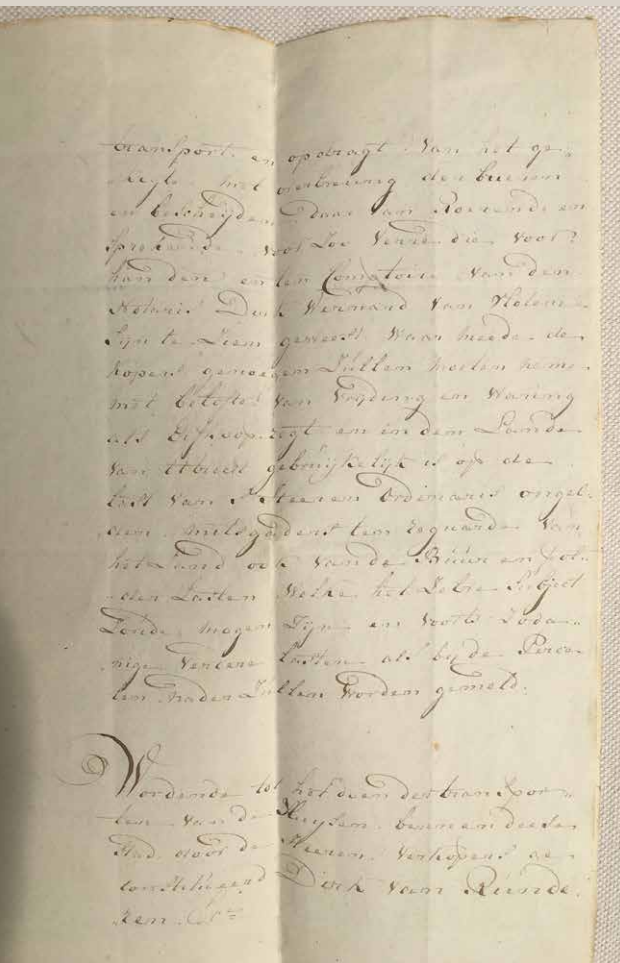 transport en opdragt van het ge„
„kogte met overlevering der brieven
en bescheijden, daar van Roerende en
Sprekende voor Zoo Verre die voor?
handen en ten Comptoire van den
Notaris Dirk Wernard van Vloten
Zijn te Zien geweest waar meede de
kopers genoegen Zullen moeten neme
met belofte van Vrijding en Waring
als Erfkoopregt en in den Lande
van Utrecht gebruijkelijk is op de
last van 's Heeren Ordinaris ongel„
den mitsgaders ten reguarde van
het Land ook van de Buur en Pol„
„der Lasten Welke het Zelve Subject
Zoude mogen Zijn en voorts Zoda„
nige verdere lasten als bij de Perce„
len nader Zullen worden gemeld.

Wordende tot het doen der transpor„
ten van de Huysen binnen deese
Stad door de Heeren Verkopers ge„
constitueerd Dirk van